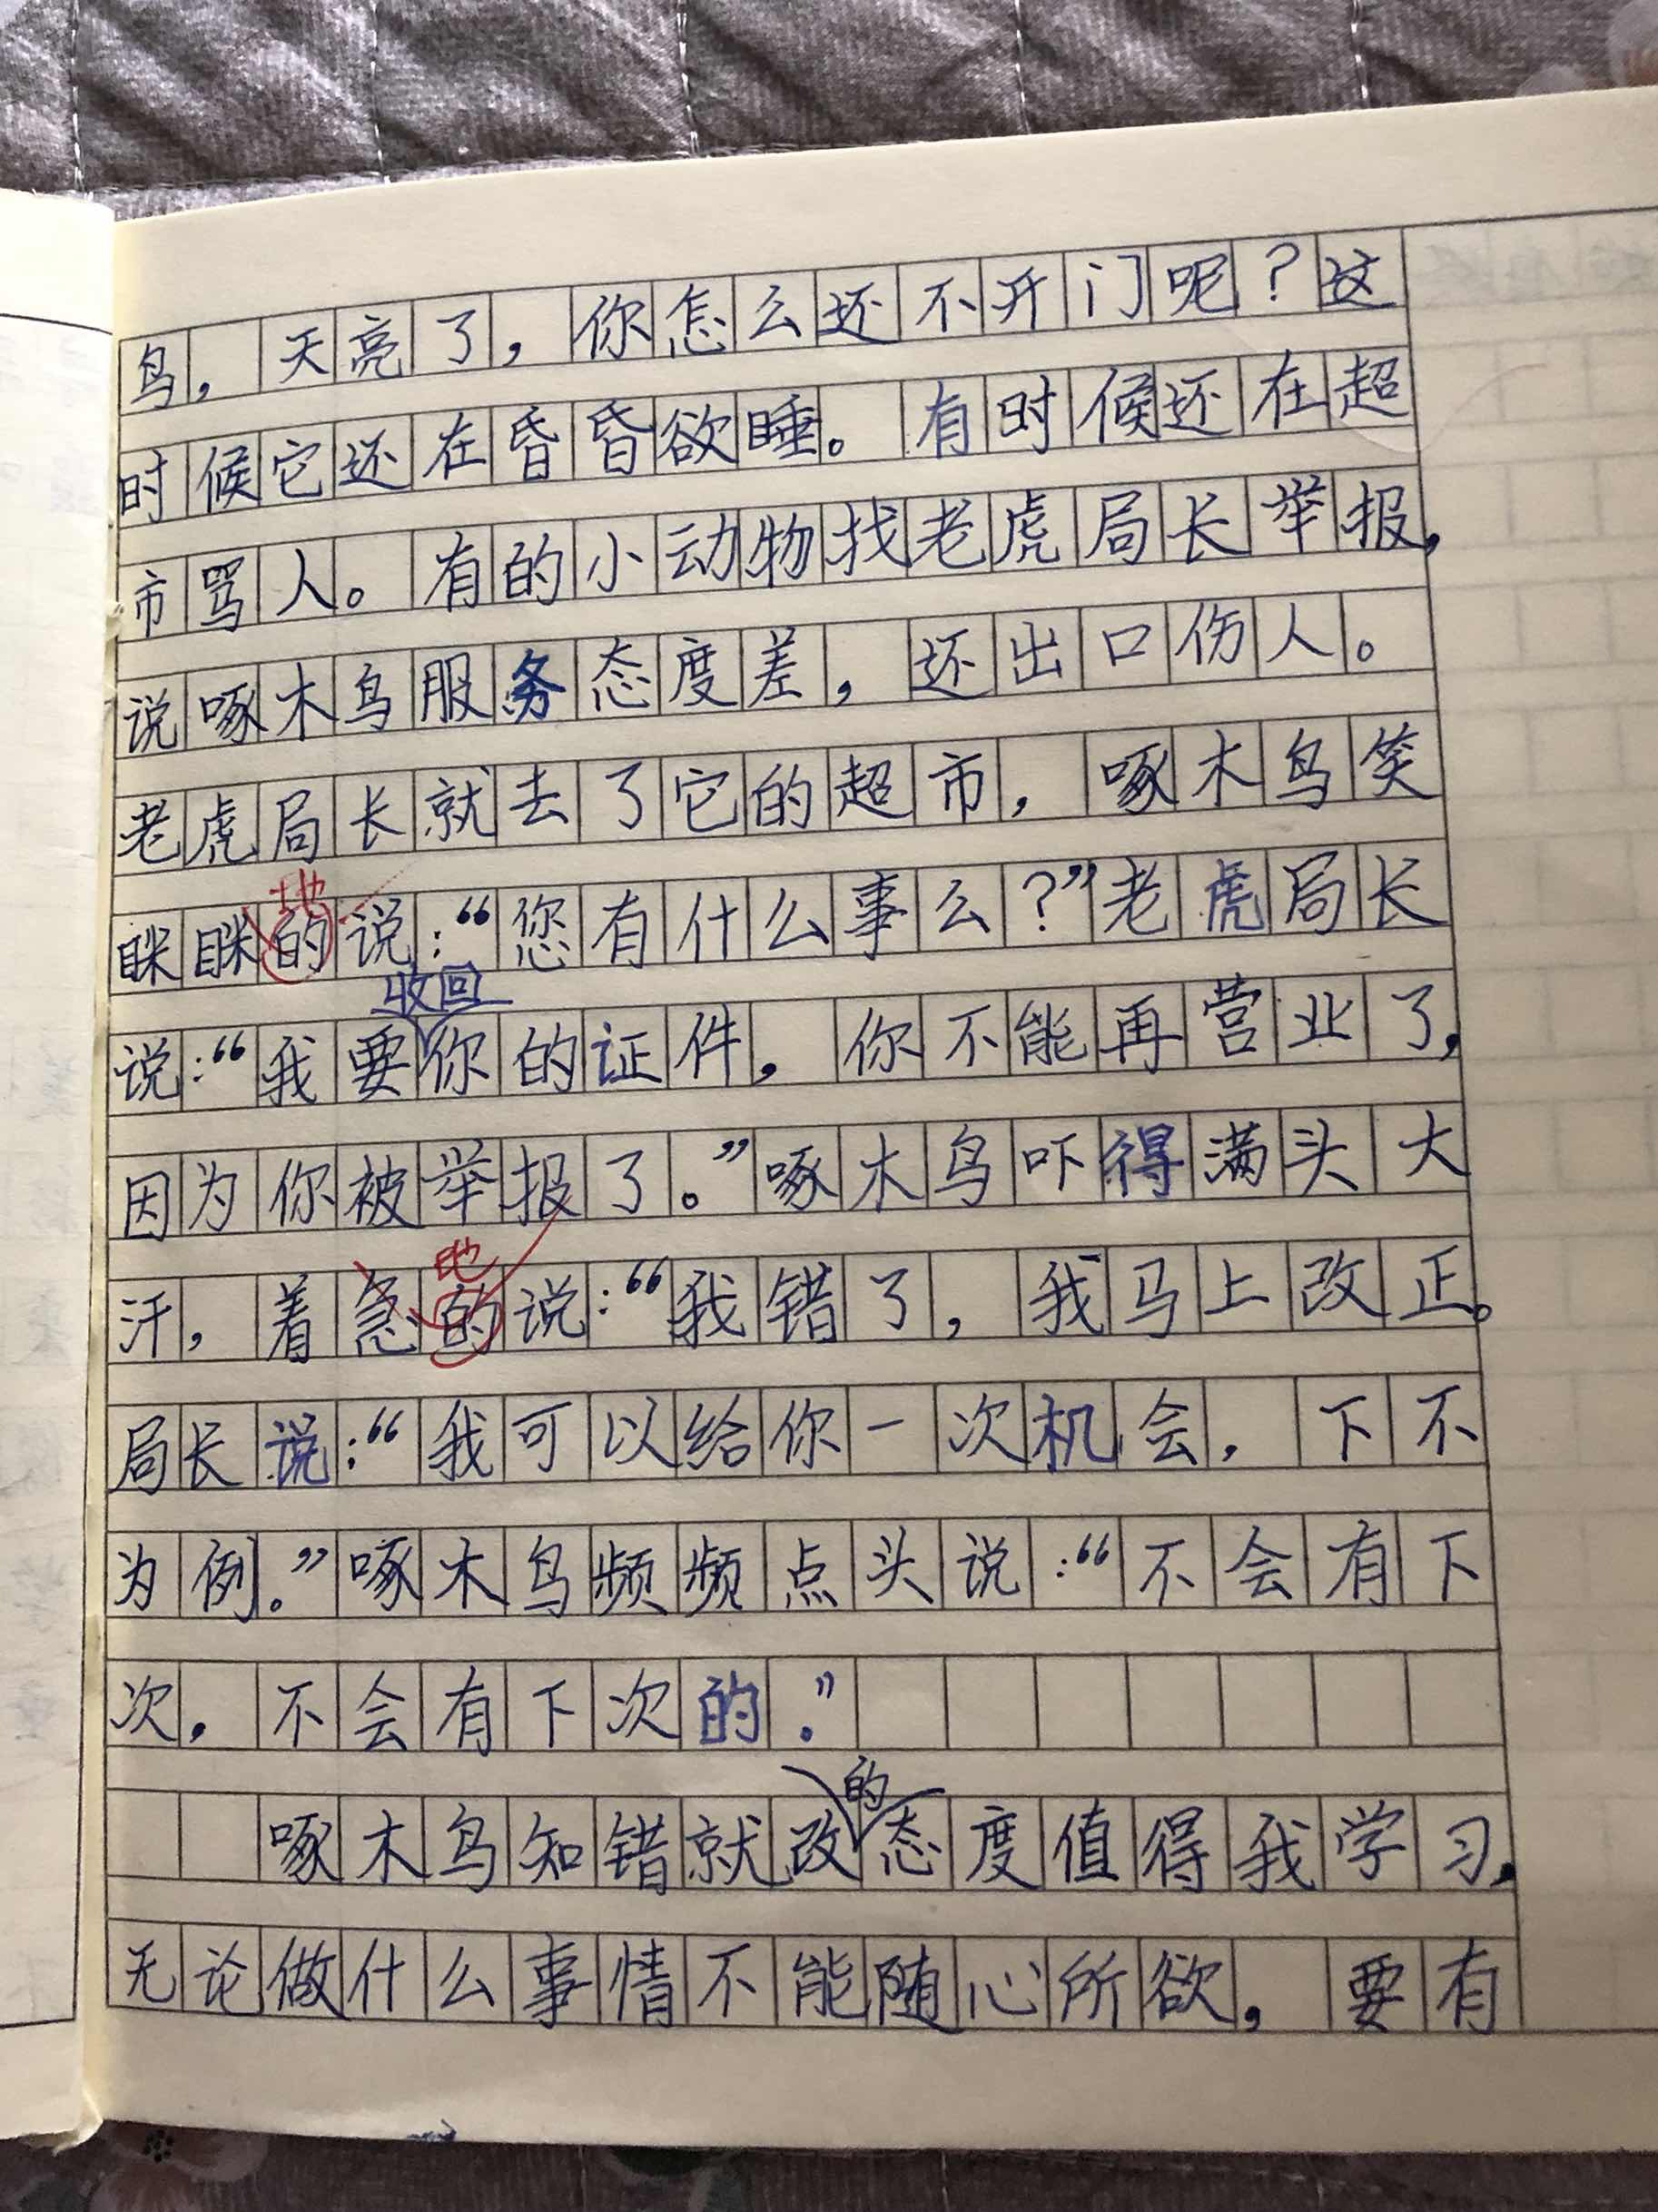 鸟，天亮了，你怎么还不开门呢？这
时候它还在昏昏欲睡。有时候还在超
市骂人。有的小动物找老虎局长举报，
说啄木鸟服务态度差，还出口伤人。
老虎局长就去了它的超市，啄木鸟笑
地
眯眯的说：“您有什么事么？”老虎局长
收回
说：“我要你的证件，你不能再营业了，
因为你被举报了。”啄木鸟吓得满头大
地
汗，着急的说：“我错了，我马上改正。
局长说：“我可以给你一次机会，下不
为例。”啄木鸟频频点头说：“不会有下
次，不会有下次的。”
的
啄木鸟知错就改态度值得我学习，
无论做什么事情不能随心所欲，要有